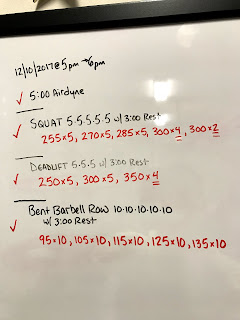 12/10/2017@5pm→6pm
✓ 5:00 Airdyne
✓ SQUAT 5·5·5·5·5 w/ 3:00 Rest
255x5, 270x5, 285x5, 300x4, 300x2
✓ DEADLIFT 5·5·5 w/ 3:00 Rest
250x5, 300x5, 350x4
✓ Bent Barbell Row 10·10·10·10·10
w/ 3:00 Rest
95x10, 105x10, 115x10, 125x10, 135x10